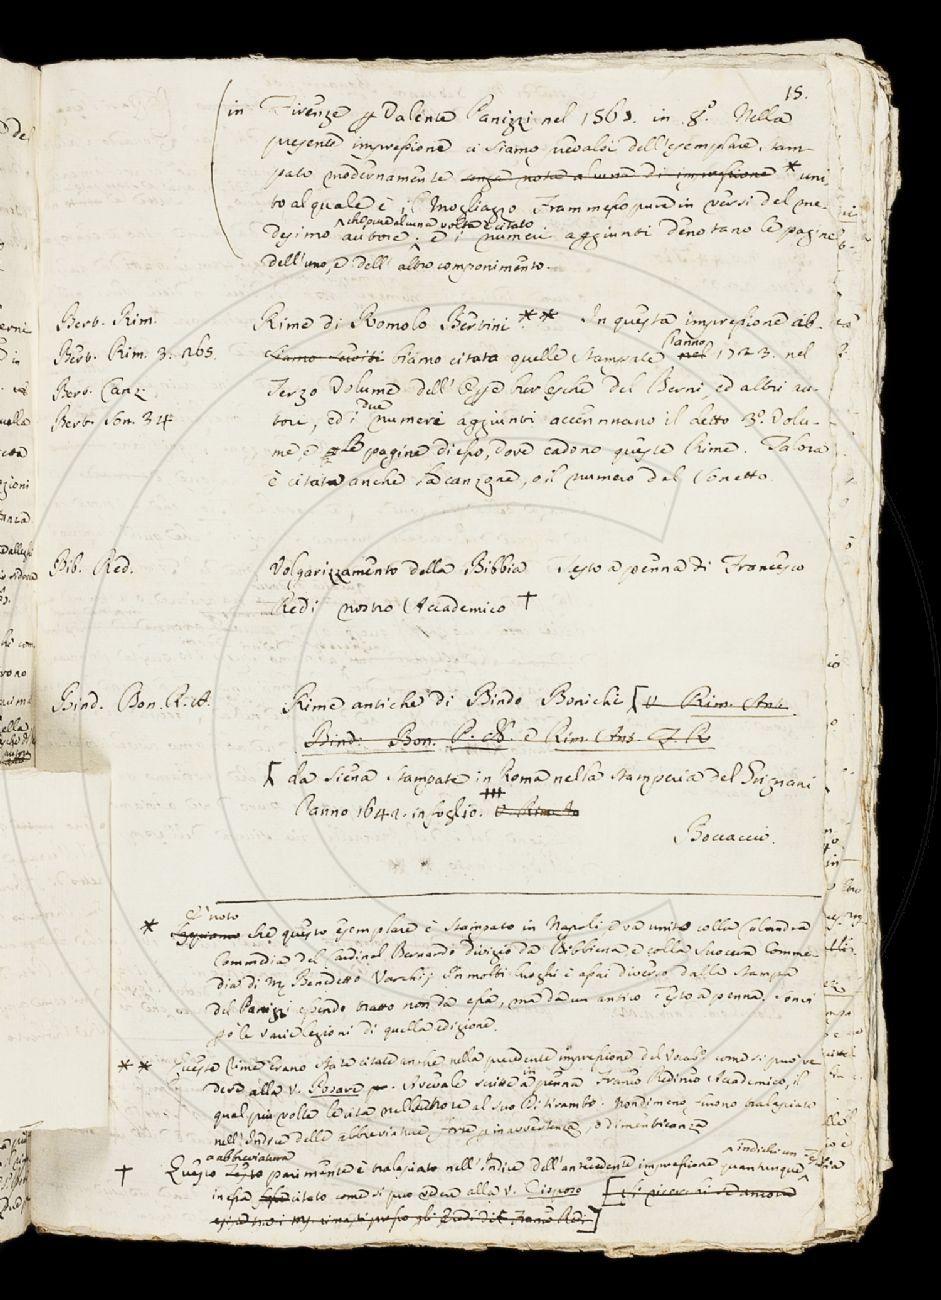 15.
in Firenze p Valente Panizzi nel 1563. in 8.° Nella
presente impressione ci siamo prevalsi dell'esemplare stam-
pato modernamente senza nota alcuna di impressione * uni
to al quale è il Mogliazzo Frammesso pure in versi del me-
che pure alcuna volta è citato
desimo autore; e i numeri aggiunti denotano le pagine
dell'uno, e dell'altro componimento.
Berb. Rim. Rime di Romolo Bertini ** In questa impressione ab-
l'anno
Berb. Rim. 3. 265. biamo citata quelle stampate nel 1723. nel
Berb. Canz. Terzo Volume dell'Opere burlesche del Berni, ed altri au-
due
Berb. Son. 34 tori, ed i numeri aggiunti accennnano il detto 3.° Volu-
me e le pagine di esso, dove cadono queste Rime. Talora
è citata anche la canzone, o il numero del Sonetto.
Bib. Red. Volgarizzamento della Bibbia Testo a penna di Francesco
Redi nostro Accademico †
Bind. Bon. R. A. Rime antiche di Bindo Bonichi [v. Rim. Ant.
Bind. Bon. P. N. e Rim. Ant. F. R.
[da Siena stampate in Roma nella stamperia del Grignani
l'anno 1642. in foglio.
Boccacci.
E' noto
* Sappiamo che questo esemplare è stampato in Napoli e va unito colla Calandra
Commedia del Cardinal Bernardo Divizio da Bibbiena, e colla Suocera Comme-
dia di M. Benedetto Varchi; In molti luoghi è assai diverso dalla stampa
del Panizzi essendo tratto non da essa, ma da un antico Testo a penna. Sonvi
pò le varie lezioni di quella edizione.
** Queste Rime erano state citate anche nella precedente impressione del Vocab. come si può ve
dere alla v. Posare Avevale scritte in penna Franco Redi nostro Accademico, il
qual più volte le cita nelle Note al suo Ditirambo. Nondimeno furono tralasciate
nell'Indice delle abbreviature, forse p inavvertenza, o dimenticanza
abbreviatura
† Questo Testo parimente è tralasciato nell'Indice dell'antecedente impressione quantunque
in essa sia citato come si può vedere alla v. Cisposo